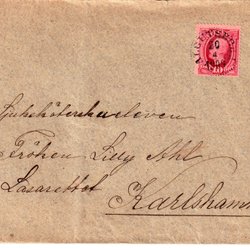 ALGUTSB
20
4
10
Sjuksköterskeeleven
Fröken Lilly Ahl
Lasarettet
Karlshamn